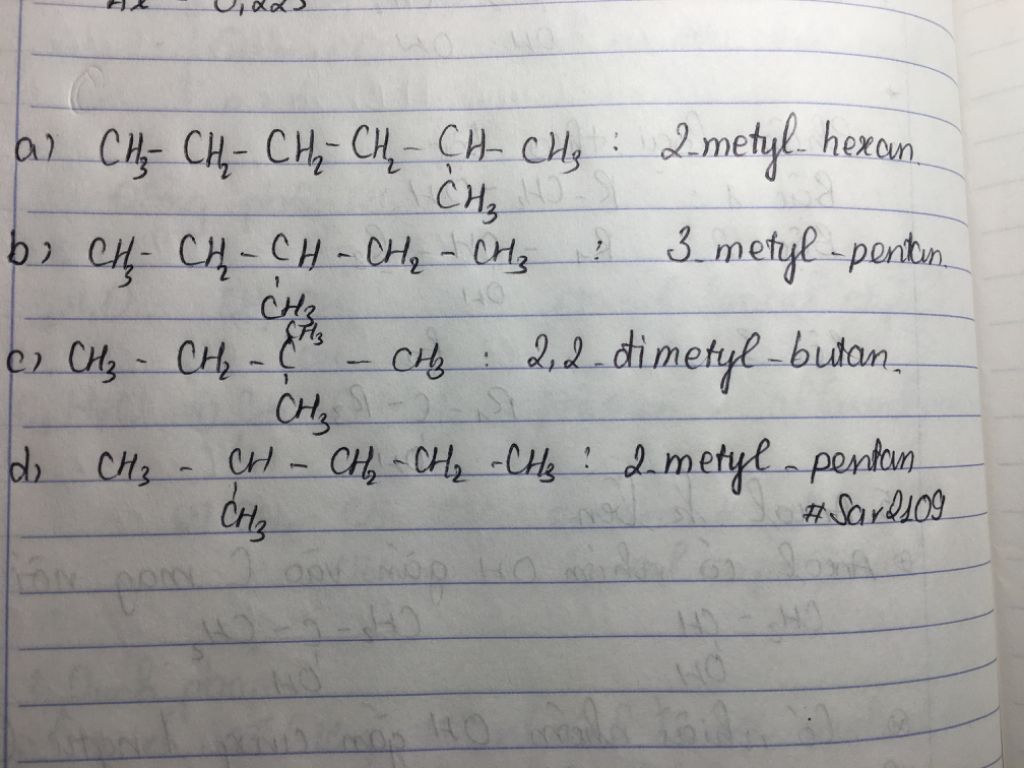 a) CH3- CH2- CH2- CH2 - CH- CH3 : 2-metyl- hexan.
CH3
b) CH3- CH2 - CH - CH2 - CH3 : 3- metyl-pentan.
CH3
CH3
c) CH3 - CH2 - C - CH3 : 2,2-dimetyl-butan.
CH3
d) CH3 - CH - CH2 - CH2 - CH3 : 2-metyl-pentan
CH3 #Sar2109